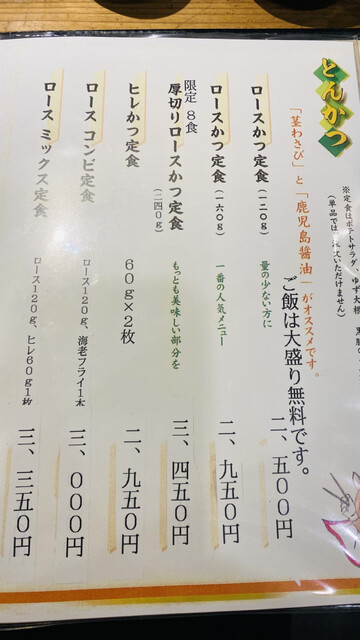 とんかつ
※定食はポテトサラダ、ゆず大根
「茎わさび」と「鹿児島醤油」がオススメです。
ご飯は大盛り無料です。
ロースかつ定食(一二〇g) 量の少ない方に 二、五〇〇円
ロースかつ定食(一六〇g) 一番の人気メニュー 二、九五〇円
限定 8食
厚切りロースかつ定食(二四〇g) もっとも美味しい部分を 三、四五〇円
ヒレかつ定食 60g×2枚 二、九五〇円
ロース コンビ定食 ロース120g、海老フライ1本 三、〇〇〇円
ロース ミックス定食 ロース120g、ヒレ60g1枚 三、三五〇円